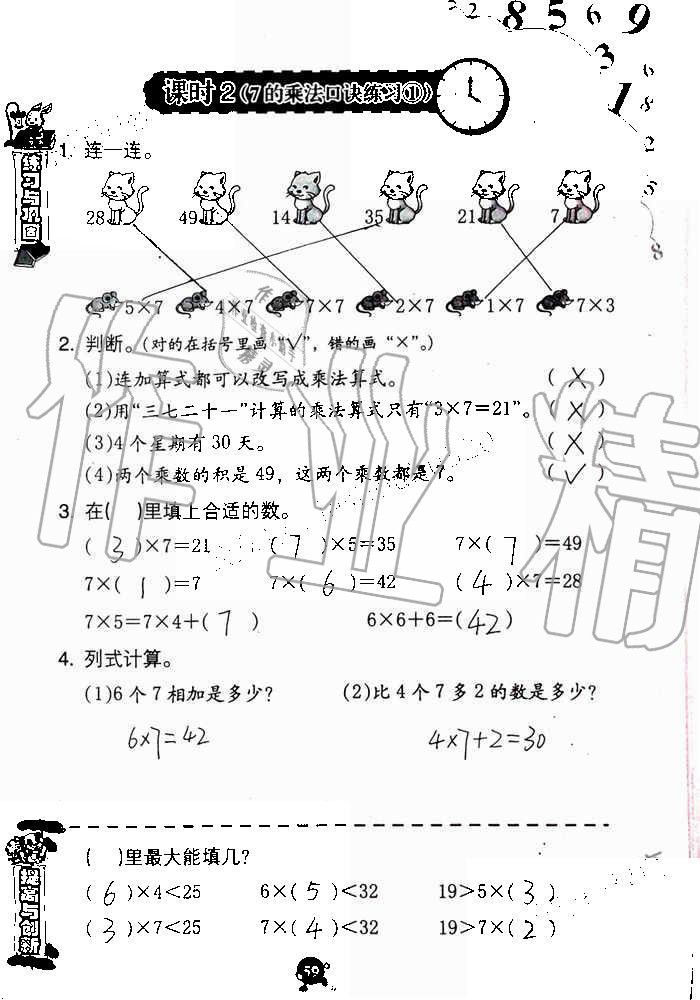 2 2 8 5 6 9
3
1
6
8
2
5
8
课时2(7的乘法口诀练习①)
练习与巩固
1. 连一连。
28 49 14 35 21 7
5×7 4×7 7×7 2×7 1×7 7×3
2. 判断。(对的在括号里画“√”，错的画“×”。)
(1)连加算式都可以改写成乘法算式。 ( × )
(2)用“三七二十一”计算的乘法算式只有“3×7=21”。 ( × )
(3)4个星期有30天。 ( × )
(4)两个乘数的积是49，这两个乘数都是7。 ( √ )
3. 在( )里填上合适的数。
( 3 )×7=21 ( 7 )×5=35 7×( 7 )=49
7×( 1 )=7 7×( 6 )=42 ( 4 )×7=28
7×5=7×4+( 7 ) 6×6+6=( 42 )
4. 列式计算。
(1)6个7相加是多少? (2)比4个7多2的数是多少?
6×7=42 4×7+2=30
提高与创新
( )里最大能填几?
( 6 )×4<25 6×( 5 )<32 19>5×( 3 )
( 3 )×7<25 7×( 4 )<32 19>7×( 2 )
59
作业精